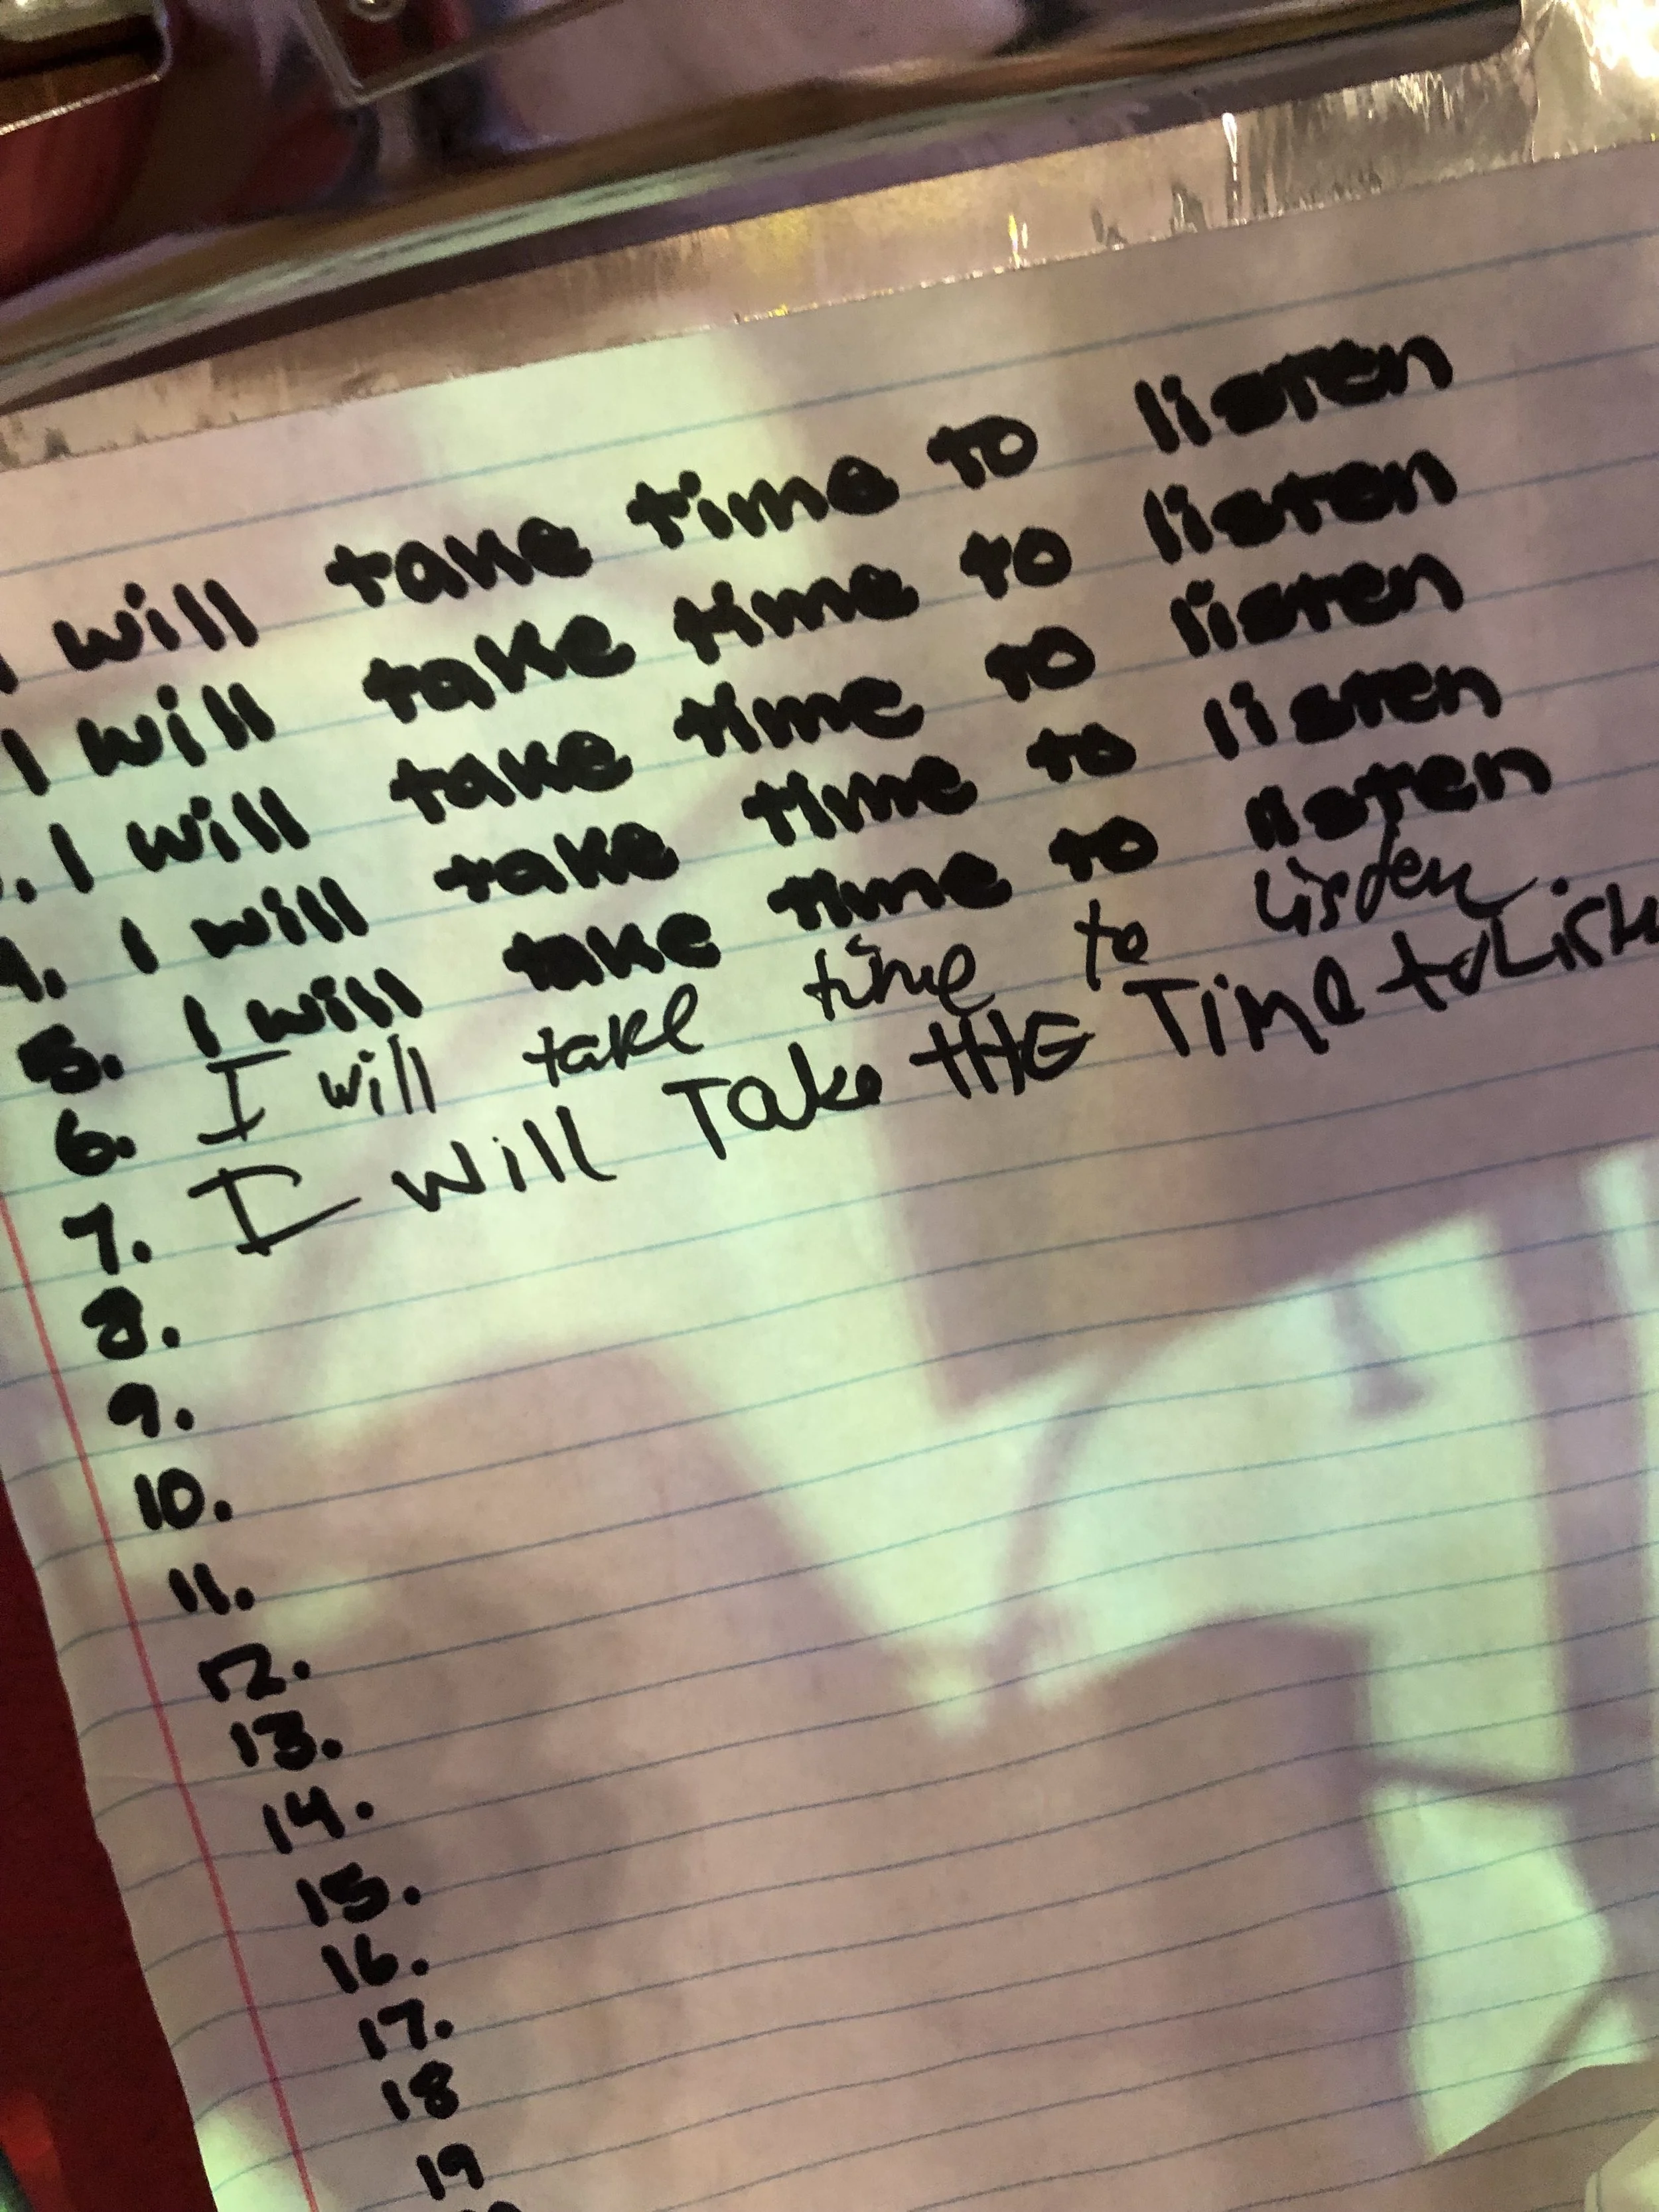 I will take time to listen
I will take time to listen
. I will take time to listen
4. I will take time to listen
5. I will take time to listen
6. I will take time to lisden.
7. I will Take tHE Time to
8.
9.
10.
11.
12.
13.
14.
15.
16.
17.
18
19